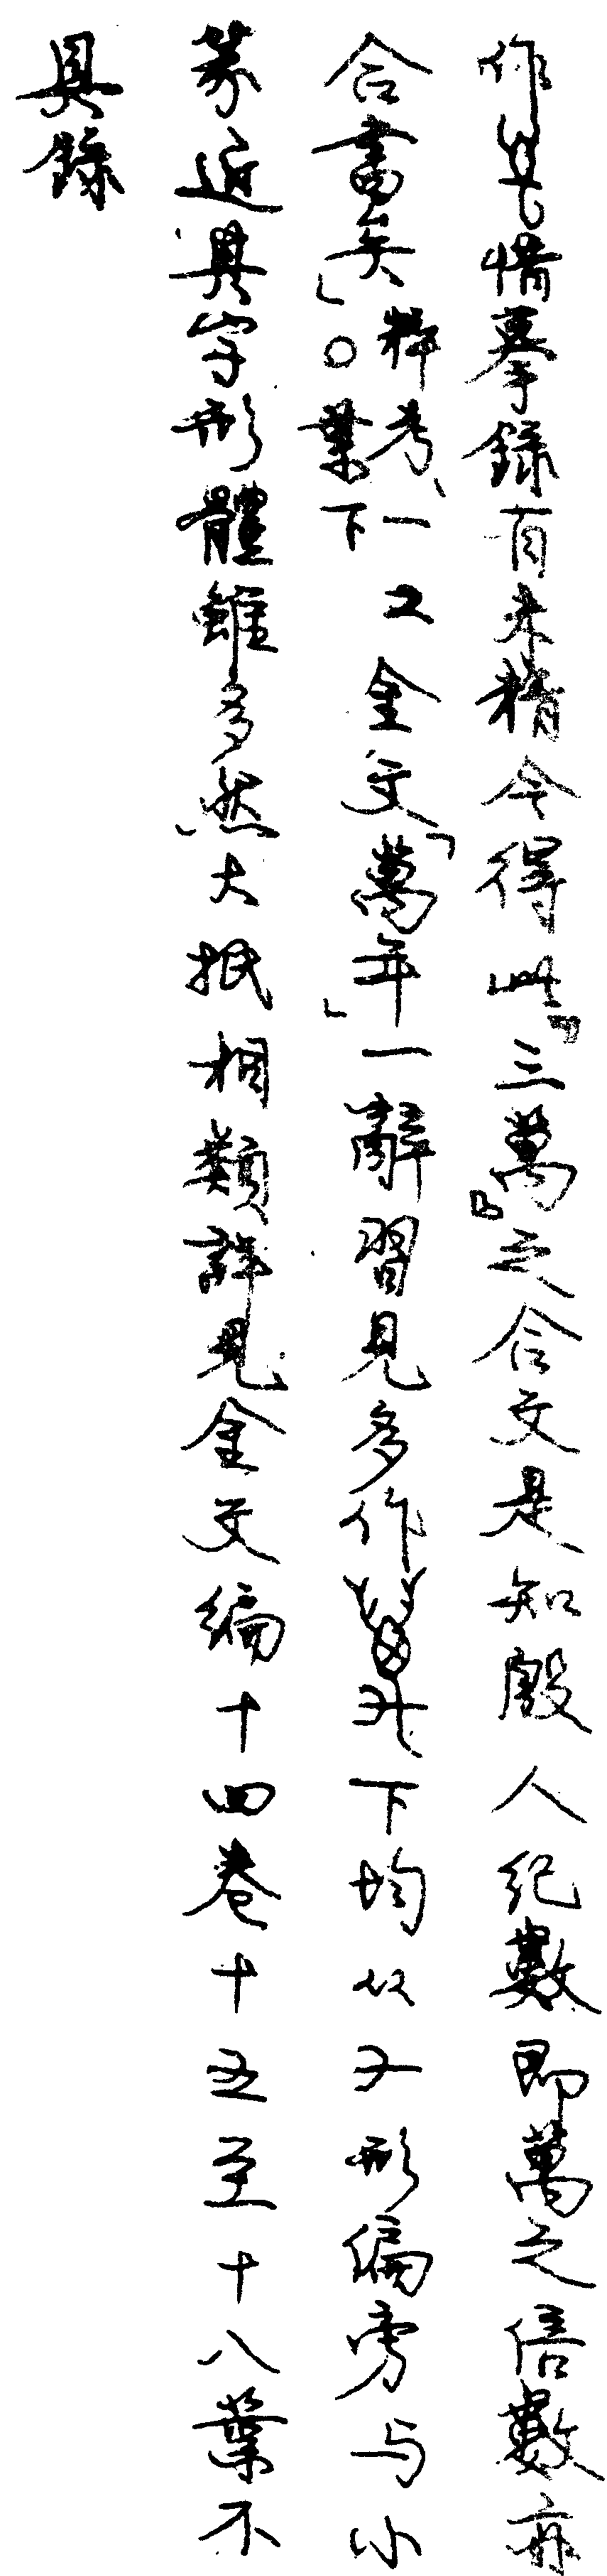 作惜摹錄有未精今得此『三萬』之合文是知殷人紀數即萬之倍數亦
合書矣」粹考、一〇葉下又金文「萬年」一辭習見多作下均从形偏旁与小
篆近其字形體雖多然大抵相類詳見金文編十四卷十五至十八葉不
具錄